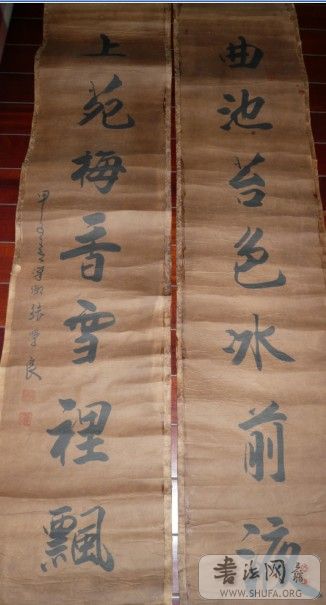 曲池苔色冰前液
上苑梅香雪裡飄
張學良
書法网
WWW.SHUFA.ORG